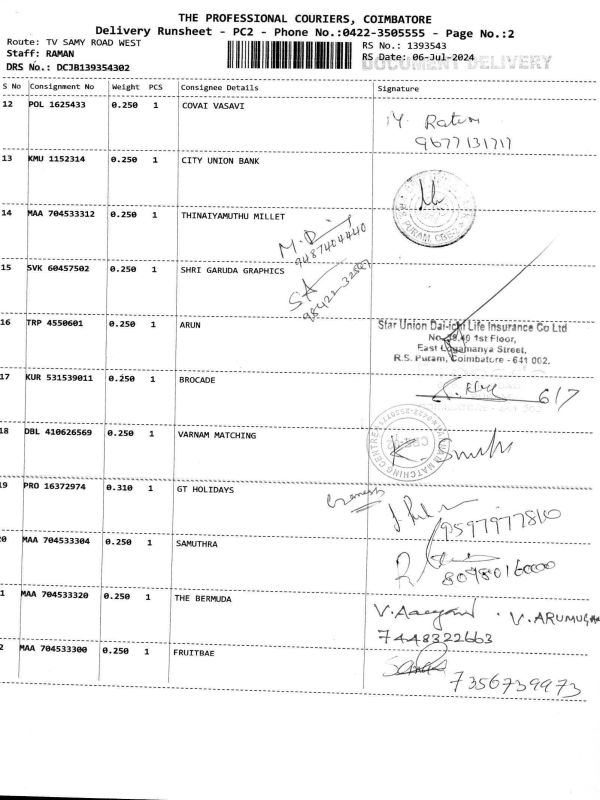 THE PROFESSIONAL COURIERS, COIMBATORE
Delivery Runsheet - PC2 - Phone No.:0422-3505555 - Page No.:2
Route: TV SAMY ROAD WEST
RS No.: 1393543
Staff: RAMAN
RS Date: 06-Jul-2024
DOCUMENT DELIVERY
DRS No.: DCJB139354302
S No Consignment No Weight PCS Consignee Details Signature
12 POL 1625433 0.250 1 COVAI VASAVI
9677131717
13 KMU 1152314 0.250 1 CITY UNION BANK
14 MAA 704533312 0.250 1 THINAIYAMUTHU MILLET
9487404440
15 SVK 60457502 0.250 1 SHRI GARUDA GRAPHICS
SA
16 TRP 4550601 0.250 1 ARUN
Star Union Dai-ichi Life Insurance Co Ltd
1st Floor,
East Logamanya Street,
R.S. Puram, Coimbatore - 641 002.
17 KUR 531539011 0.250 1 BROCADE
6/7
18 DBL 410626569 0.250 1 VARNAM MATCHING
19 PRO 16372974 0.310 1 GT HOLIDAYS
9597977810
20 MAA 704533304 0.250 1 SAMUTHRA
1 MAA 704533320 0.250 1 THE BERMUDA
V. ARUMUGA
7448322663
2 MAA 704533300 0.250 1 FRUITBAE
7356739973